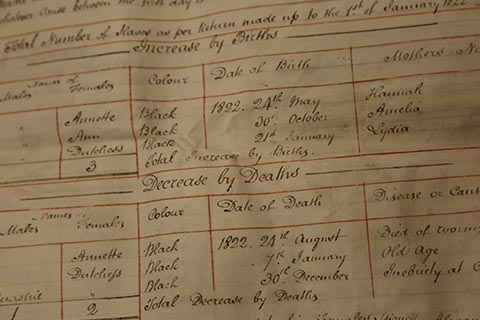 whatever cause between the first day
Total Number of Slaves as per Return made up to the 1st of January 1822
Increase by Births
Names of
Males Females Colour Date of Birth Mothers Na
" Annette Black 1822. 24th May Hannah
" Ann Black 30th October Amelia
" Dutchess Black 21st January Lydia
3 Total Increase by Births.
Decrease by Deaths
Names of
Males Females Colour Date of Death Disease or Caus
Annette Black 1822. 24th August Died of worms
Dutchess Black 7th January Old Age
" Black 30th December Inebriety at
1 2 Total Decrease by Deaths